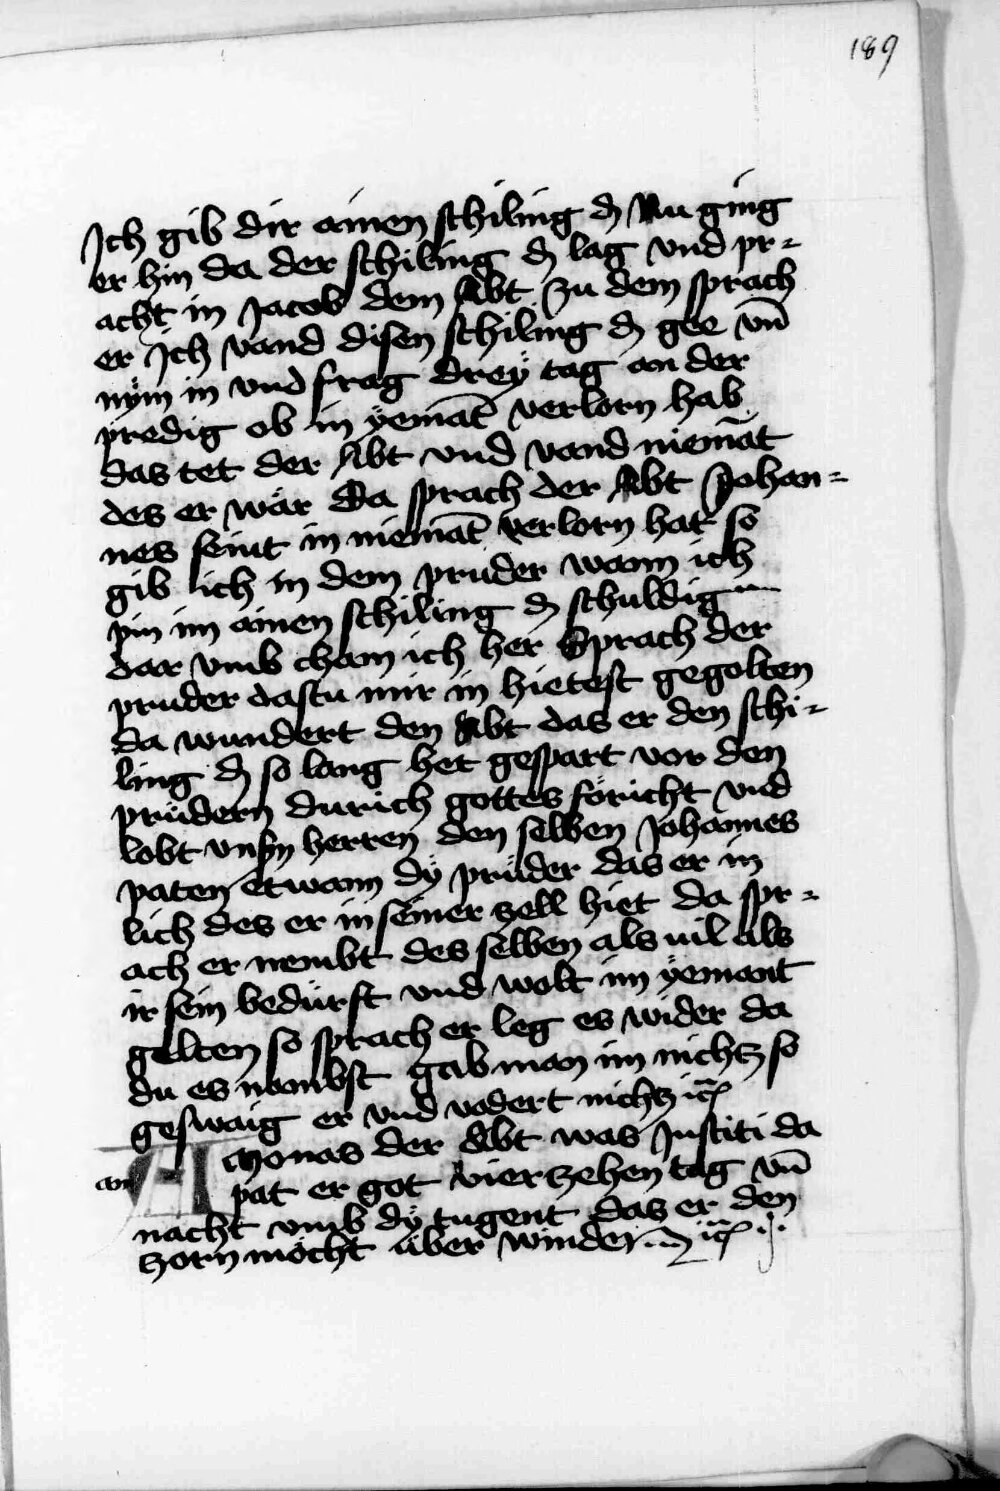 189
Ich gib dir ainen schiling ₰ Nu ging
er hin da der schiling ₰ lag vnd pr=
acht in Jacob dem Abt Zu dem sprach
er Ich vand disen schiling ₰ gee vn̄
nÿm in vnd frag dreÿ tag an der
predig ob in ÿemāt verlorn hab
das tet der Abt vnd vand niemāt
des er wär Da sprach der Abt Johan=
nes seint in niemāt verlorn hat so
gib ich in dem pruder wann ich
pin im ainen schiling ₰ schuldig
dar vmb cham ich her Sprach der
pruder dastu mir in hietest gegolten
da wundert den Abt das er den schi=
ling ₰ so lang het gespart vor den
prüdern durich gottes föricht vnd
lobt vnsn̄ herren den selben Johannes
paten etwann dÿ prüder das er in
lich des er in seiner zell hiet da spr=
ach er nembt des selben als uil als
ir sein bedürft vnd wolt im ÿemant
gelten so sprach er leg es wider da
du es nembst gab man im nichtz so
geswaig er vnd vodert nichtz ꝛc̄
Amonas der Abt was Justiti da
pat er got vierzehen tag vn̄
nacht vmb dÿ tugent das er den
zorn möcht über winden ꝛc̄